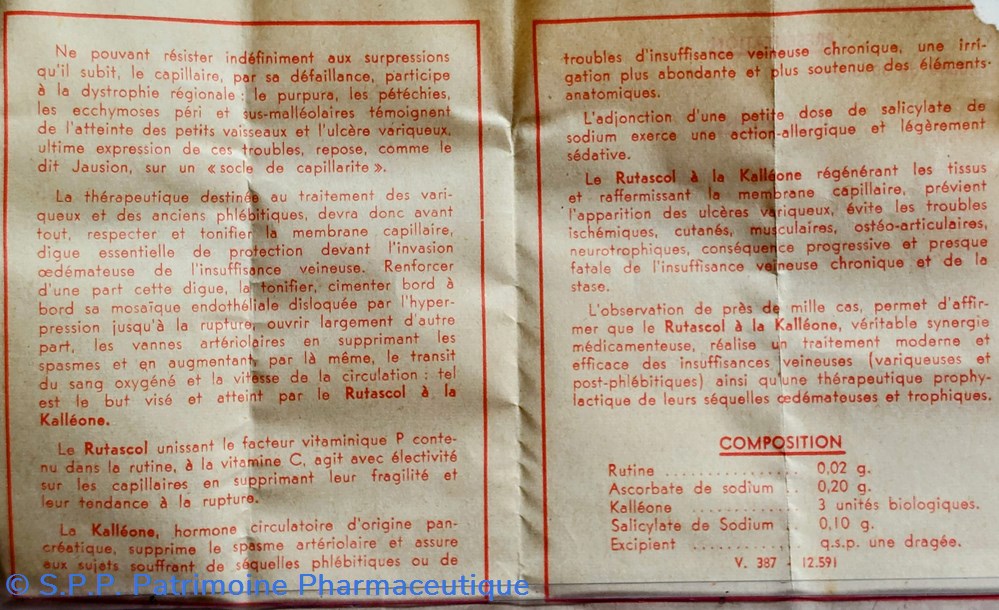 Ne pouvant résister indéfiniment aux surpressions
qu'il subit, le capillaire, par sa défaillance, participe
à la dystrophie régionale : le purpura, les pétéchies,
les ecchymoses péri et sus-malléolaires témoignent
de l'atteinte des petits vaisseaux et l'ulcère variqueux,
ultime expression de ces troubles, repose, comme le
dit Jausion, sur un « socle de capillarite ».
La thérapeutique destinée au traitement des vari-
queux et des anciens phlébitiques, devra donc avant
tout, respecter et tonifier la membrane capillaire,
digue essentielle de protection devant l'invasion
œdémateuse de l'insuffisance veineuse. Renforcer
d'une part cette digue, la tonifier, cimenter bord à
bord sa mosaïque endothéliale disloquée par l'hyper-
pression jusqu'à la rupture, ouvrir largement d'autre
part, les vannes artériolaires en supprimant les
spasmes et en augmentant, par là même, le transit
du sang oxygéné et la vitesse de la circulation : tel
est le but visé et atteint par le Rutascol à la
Kalléone.
Le Rutascol unissant le facteur vitaminique P conte-
nu dans la rutine, à la vitamine C, agit avec électivité
sur les capillaires en supprimant leur fragilité et
leur tendance à la rupture.
La Kalléone, hormone circulatoire d'origine pan-
créatique, supprime le spasme artériolaire et assure
aux sujets souffrant de séquelles phlébitiques ou de
troubles d'insuffisance veineuse chronique, une irri-
gation plus abondante et plus soutenue des éléments
anatomiques.
L'adjonction d'une petite dose de salicylate de
sodium exerce une action-allergique et légèrement
sédative.
Le Rutascol à la Kalléone régénérant les tissus
et raffermissant la membrane capillaire, prévient
l'apparition des ulcères variqueux, évite les troubles
ischémiques, cutanés, musculaires, ostéo-articulaires,
neurotrophiques, conséquence progressive et presque
fatale de l'insuffisance veineuse chronique et de la
stase.
L'observation de près de mille cas, permet d'affir-
mer que le Rutascol à la Kalléone, véritable synergie
médicamenteuse, réalise un traitement moderne et
efficace des insuffisances veineuses (variqueuses et
post-phlébitiques) ainsi qu'une thérapeutique prophy-
lactique de leurs séquelles œdémateuses et trophiques.
COMPOSITION
Rutine ................ 0,02 g.
Ascorbate de sodium .. 0,20 g.
Kalléone .............. 3 unités biologiques.
Salicylate de Sodium .. 0,10 g.
Excipient ............. q.s.p. une dragée.
V. 387 - 12.591
© S.P.P. Patrimoine Pharmaceutique